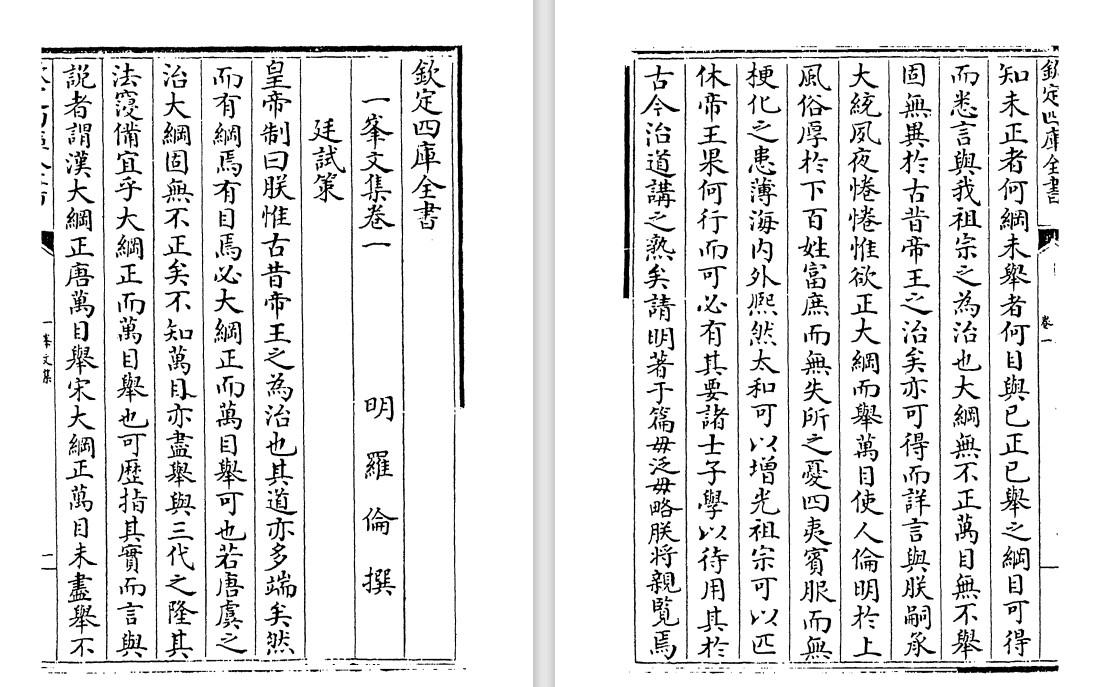 欽定四庫全書
一峯文集卷一 明 羅倫 撰
廷試策
皇帝制曰朕惟古昔帝王之為治也其道亦多端矣然
而有綱焉有目焉必大綱正而萬目舉可也若唐虞之
治大綱固無不正矣不知萬目亦盡舉與三代之隆其
法寖備宜乎大綱正而萬目舉也可歷指其實而言與
説者謂漢大綱正唐萬目舉宋大綱正萬目未盡舉不
一峯文集 一
欽定四庫全書 卷一
知未正者何綱未舉者何目與已正已舉之綱目可得
而悉言與我祖宗之為治也大綱無不正萬目無不舉
固無異於古昔帝王之治矣亦可得而詳言與朕嗣承
大統夙夜惓惓惟欲正大綱而舉萬目使人倫明於上
風俗厚於下百姓富庶而無失所之憂四夷賓服而無
梗化之患薄海内外熈然太和可以增光祖宗可以匹
休帝王果何行而可必有其要諸士子學以待用其於
古今治道講之熟矣請明著于篇毋泛毋略朕將親覽焉